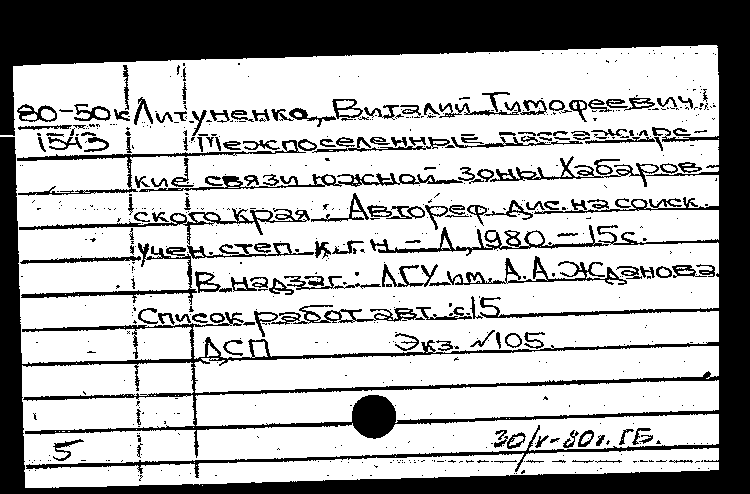 80-50к Литуненко, Виталий Тимофеевич.
1543 Межпоселенные пассажирс-
кие связи южной зоны Хабаров-
ского края: Автореф. дис. на соиск.
учен. степ. к.г.н. - Л., 1980. - 15с.
В надзаг.: ЛГУ им. А.А. Жданова
Список работ авт.: с15
ДСП Экз. №105.
5 30/V-80г. ГБ.